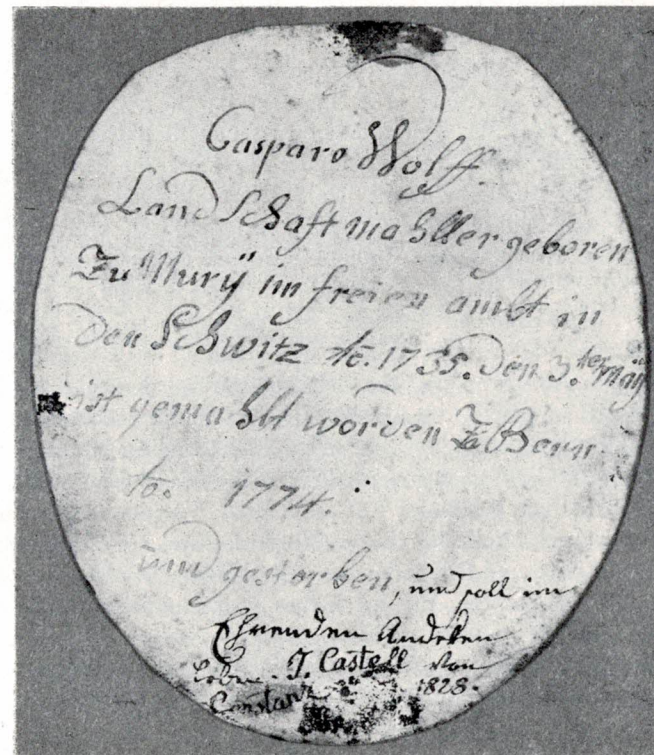 Gasparo Wolff.
Landschaft mahller geboren
Zu Murÿ im freien ambt in
den Schwitz ao. 1735. den 3.ter maÿ
ist gemahlt worden Zu Bern
ao. 1774.
und gestorben, und soll im
Ehrenden Andeken
leben. J. Castell von
Constanz 1828.